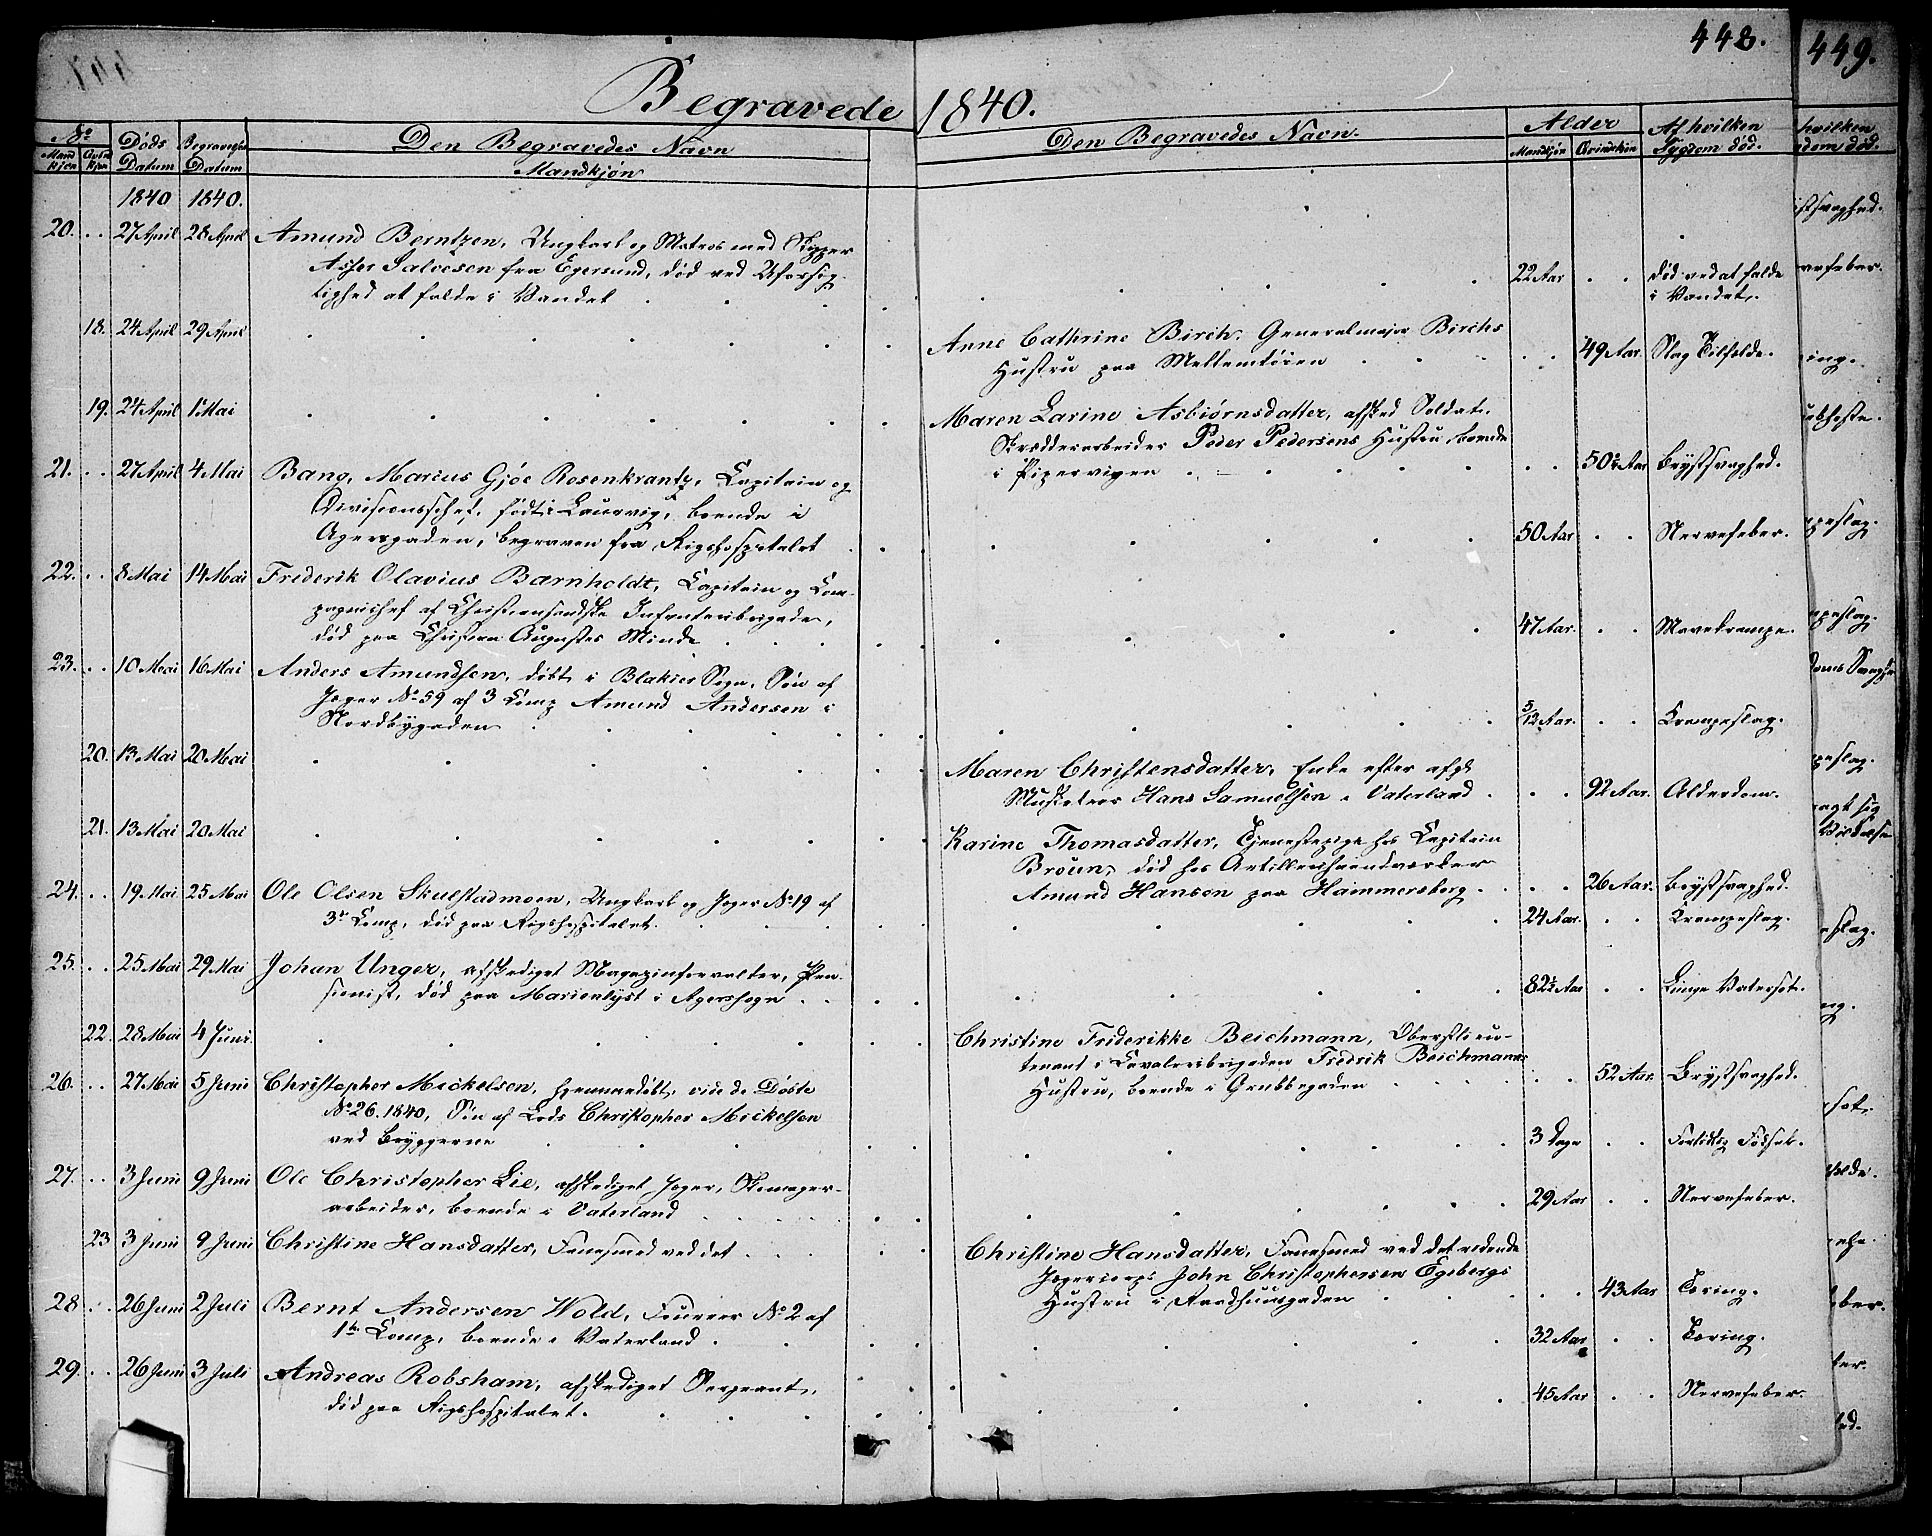 448.
449.
Begravede 1840.
No
Mand kjøn
Qvin kjøn
Døds Datum
Begravelses Datum
Den Begravedes Navn
Mandkjøn
Den Begravedes Navn.
Alder
Mandkjøn
Qvindekjøn
Af hvilken Sygdom død.
1840 1840.
20. 27 April 28 April Amund Berntzen, Ungkarl og Matros med Skipper
Asser Salvesen fra Egersund, død ved Uforsig-
tighed at falde i Vandet 22 Aar død ved at falde
i Vandet.
18. 24 April 29 April Anne Cathrine Birch, Generalmajor Birchs
Hustru paa Mellemtøien 49 Aar. Slag Tilfælde.
19. 24 April 1 Mai Maren Larine Asbiørnsdatter, afsked Soldat,
Skrædderarbeider Peder Pedersens Hustru boende
i Pipervigen 50½ Aar Brystsvaghed.
21. 27 April 4 Mai Bang, Marius Gjøe Rosenkrantz, Capitain og
Divisionschef, født i Laurvig, boende i
Agersgaden, begraven fra Rigshospitalet 50 Aar Nervefeber.
22. 8 Mai 14 Mai Frederik Olavius Barnholdt, Capitain og Com-
pagnichef af Christiansandske Infanteribrigade,
død paa Christian Augustes Minde 47 Aar. Mavekrampe.
23. 10 Mai 16 Mai Anders Amundsen, døbt i Blakier Sogn, Søn af
Jæger No 59 af 3 Comp Amund Andersen i
Nordbygaden 5/12 Aar. Krampeslag.
20. 13 Mai 20 Mai Maren Christensdatter, Enke efter afgk
Musketeer Hans Samuelsen i Vaterland 92 Aar. Alderdom.
21. 13 Mai 20 Mai Karine Thomasdatter, Tjenestepige hos Capitain
Broun, død hos Artillerihaandværker
Amund Hansen paa Hammersborg 26 Aar. Brystsvaghed.
24. 19 Mai 25 Mai Ole Olsen Skulstadmoen, Ungkarl og Jæger No 19 af
3e Comp, død paa Rigshospitalet. 24 Aar. Krampeslag.
25. 25 Mai 29 Mai Johan Unger, afskediget Magazinforvalter, Pen-
sionist, død paa Marienlyst i Agersogn 82½ Aar Lunge Vatersot.
22. 28 Mai 4 Juni. Christine Friderikke Beichmann, Oberstlieu-
tenant i Cavaleribrigaden Fredrik Beichmanns
Hustru, boende i Grubbegaden 52 Aar. Brystsvaghed.
26. 27 Mai 5 Juni Christopher Mickelsen, hjemmedøbt, vide de Døbte
No 26. 1840, Søn af Lods Christopher Mickelsen
ved Bryggerne 3 Dage Fortidlig Fødsel.
27. 3 Juni 9 Juni Ole Christopher Lie, afskediget Jæger, Skomager-
arbeider, boende i Vaterland 29 Aar Nervefeber.
23 3 Juni 9 Juni Christine Hansdatter, Fanesmed ved det
Christine Hansdatter, Fanesmed ved det ridende
Jægercorps John Christophersen Egebergs
Hustru i Raadhuusgaden 43 Aar Tæring.
28 26 Juni 2 Juli Bernt Andersen Wold, Fourer No 2 af
1te Comp, boende i Vaterland. 32 Aar Tæring.
29. 26 Juni 3 Juli Andreas Robsham, afskediget Sergeant,
død paa Rigshospitalet. 45 Aar Nervefeber.